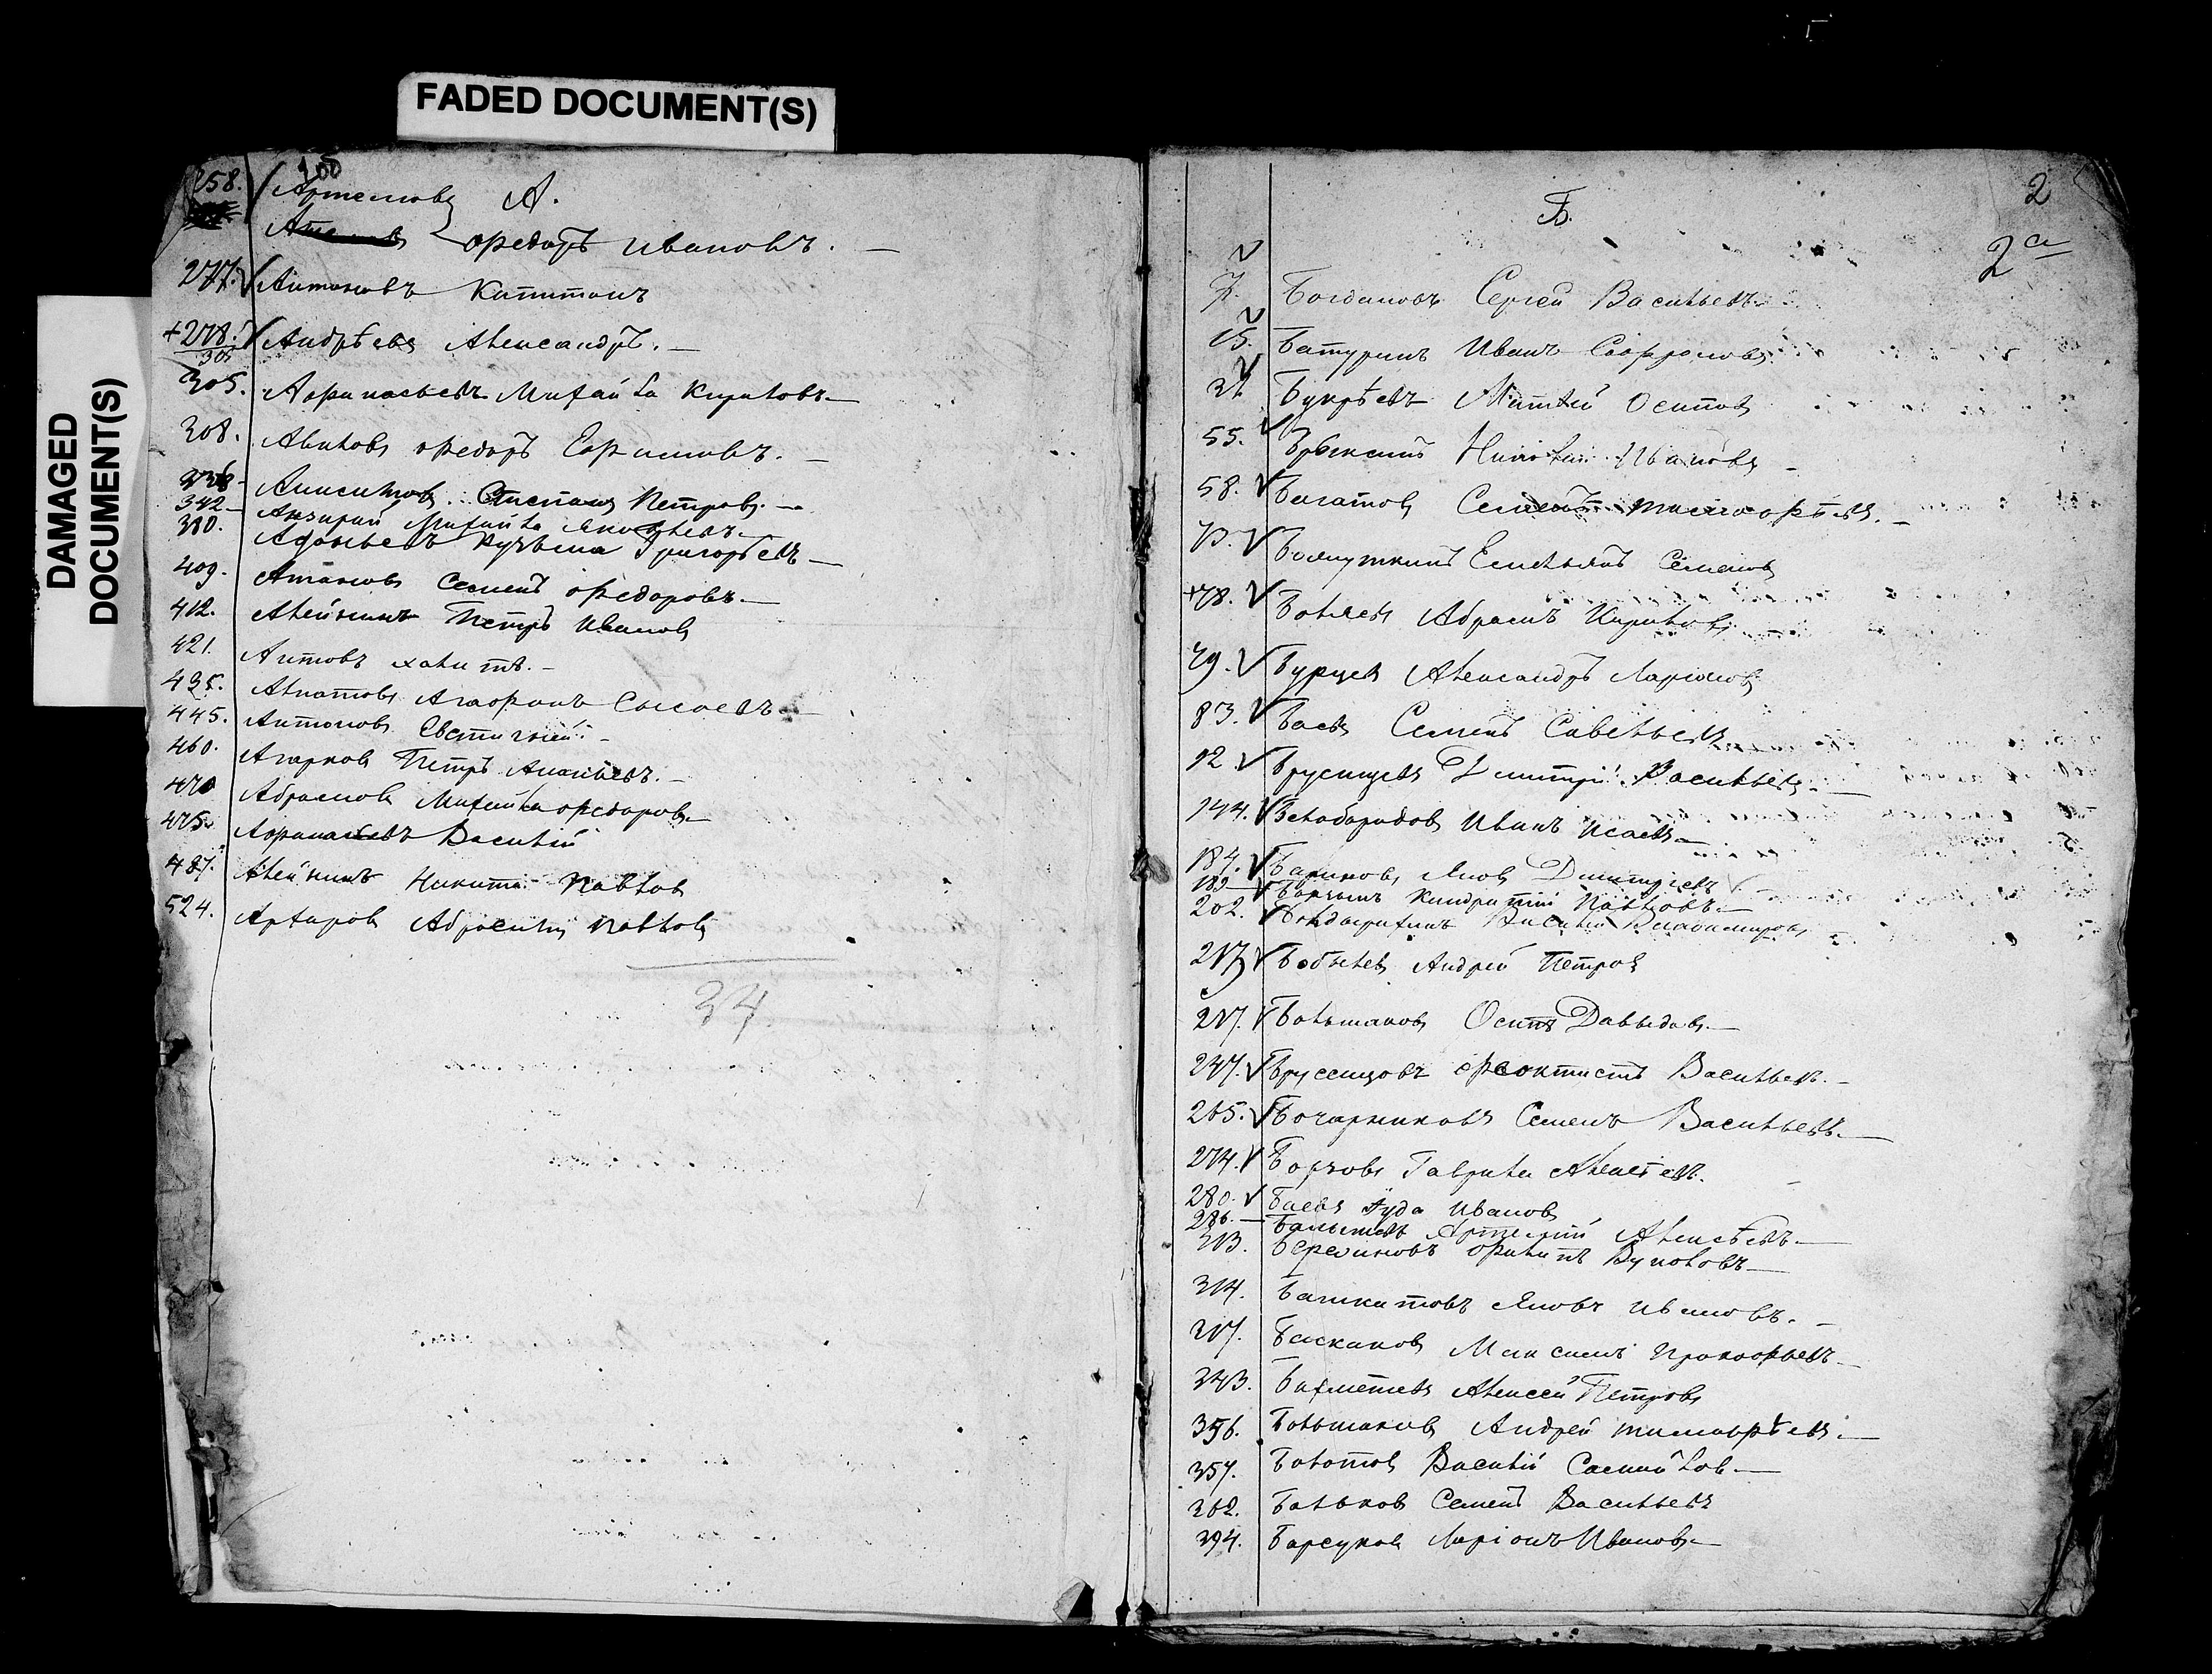 FADED DOCUMENT(S)
DAMAGED
DOCUMENT(S)
А.
258. Артемовъ
Федоръ Ивановъ.
277. Антоновъ Капитонъ
+278. Андрѣевъ Александръ.
305. Афанасьевъ Михайла Кириловъ
308. Авиловъ Федоръ Ефимовъ.
338 Аникитовъ Степанъ Петровъ.
342 Михайла Яковлевъ
380. Кузьма Григорьевъ
409. Семенъ Федоровъ.
412. Алейникъ Петръ Ивановъ
421. Аитовъ Халитъ.
435. Агафонъ Сысоевъ
445. Антоновъ Евстигнѣй.
460. Агарковъ Петръ Ананьевъ.
470 Абрамовъ Михайла Федоровъ
475. Афанасьевъ Василій
487. Алейникъ Никита Павловъ
524. Абрамъ Павловъ
34
2
Б.
2а
7. Богдановъ Сергей Васильевъ
15. Батуринъ Иванъ Софроновъ
31. Букрѣевъ Матвѣй Осиповъ
55. Николай Ивановъ
58. Багатовъ Семенъ Тимофѣевъ.
Емельянъ Семеновъ
+78. Абрамъ Кириловъ
79. Бурцевъ Александръ Ларіоновъ
83. Баевъ Семенъ Савельевъ
92 Брусенцевъ Дмитрій Васильевъ
144. Белобородовъ Иванъ Исаевъ
184. Бариновъ Яковъ Дмитріевъ
189 Кондратій Павловъ
202. Василій Владимировъ
217 Бобылевъ Андрей Петровъ
217. Большаковъ Осипъ Давыдовъ
247. Бруссенцовъ Феоктистъ Васильевъ.
265. Бочарниковъ Семенъ Васильевъ.
274. Борзовъ Гаврила Алексѣевъ.
280. Баевъ Іуда Ивановъ
286. Артемій Алексѣевъ
303. Филипъ Вуколовъ
314. Башкатовъ Яковъ Ивановъ.
317. Баскаковъ Максимъ Прокофьевъ
343. Бахметевъ Алексей Петровъ
356. Большаковъ Андрей Тимофѣевъ.
357. Болотовъ Василій Самойлов
362. Семенъ Васильевъ
394. Барсуковъ Ларіонъ Ивановъ